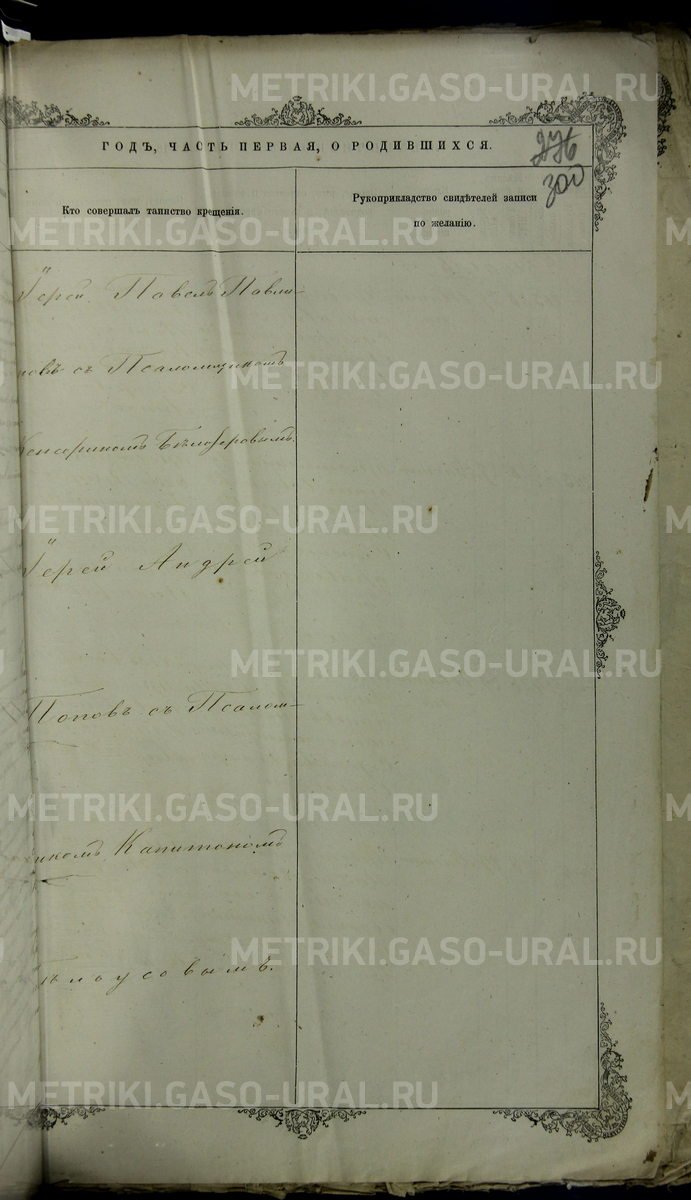 METRIKI.GASO-URAL.RU
ГОДЪ, ЧАСТЬ ПЕРВАЯ, О РОДИВШИХСЯ.
276
300
Кто совершалъ таинство крещенія.
Рукоприкладство свидѣтелей записи
по желанію.
METRIKI.GASO-URAL.RU
Іерей Павелъ Павли-
новъ съ Псаломщикомъ
METRIKI.GASO-URAL.RU
Бѣлозеровымъ.
METRIKI.GASO-URAL.RU
Іерей Андрей
METRIKI.GASO-URAL.RU
Поповъ съ Псалом-
METRIKI.GASO-URAL.RU
щикомъ Капитономъ
METRIKI.GASO-URAL.RU
Бѣлоусовымъ.
METRIKI.GASO-URAL.RU